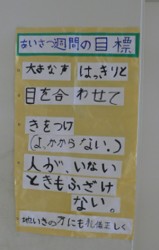 あいさつ週間の目標
大きな声 はっきりと
目を合わせて
きをつけ
(よ、かからない。)
人が、いない
ときもふざけ
ない。
地いきの方にも礼儀正しく